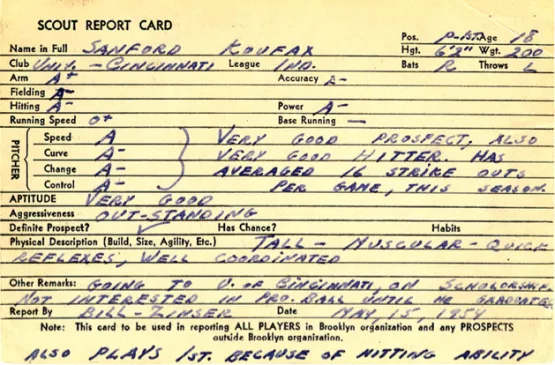 SCOUT REPORT CARD
Pos. P-1ST Age 18
Name in Full SANFORD KOUFAX Hgt. 6'2" Wgt. 200
Club UNIV. - CINCINNATI League IND. Bats R Throws L
Arm A+ Accuracy A-
Fielding A-
Hitting A- Power A-
Running Speed O+ Base Running —
PITCHER
Speed A VERY GOOD PROSPECT, ALSO
Curve A- VERY GOOD HITTER. HAS
Change A- AVERAGED 16 STRIKE OUTS
Control A- PER GAME, THIS SEASON.
APTITUDE VERY GOOD
Aggressiveness OUT-STANDING
Definite Prospect? ✓ Has Chance? Habits
Physical Description (Build, Size, Agility, Etc.) TALL - MUSCULAR - QUICK
REFLEXES, WELL COORDINATED
Other Remarks: GOING TO U. OF CINCINNATI, ON SCHOLORSHIP.
NOT INTERESTED IN PRO. BALL UNTIL HE GRADUATES
Report By BILL - ZINSER Date MAY, 15, 1954
Note: This card to be used in reporting ALL PLAYERS in Brooklyn organization and any PROSPECTS
outside Brooklyn organization.
ALSO PLAYS 1ST. BECAUSE OF HITTING ABILITY